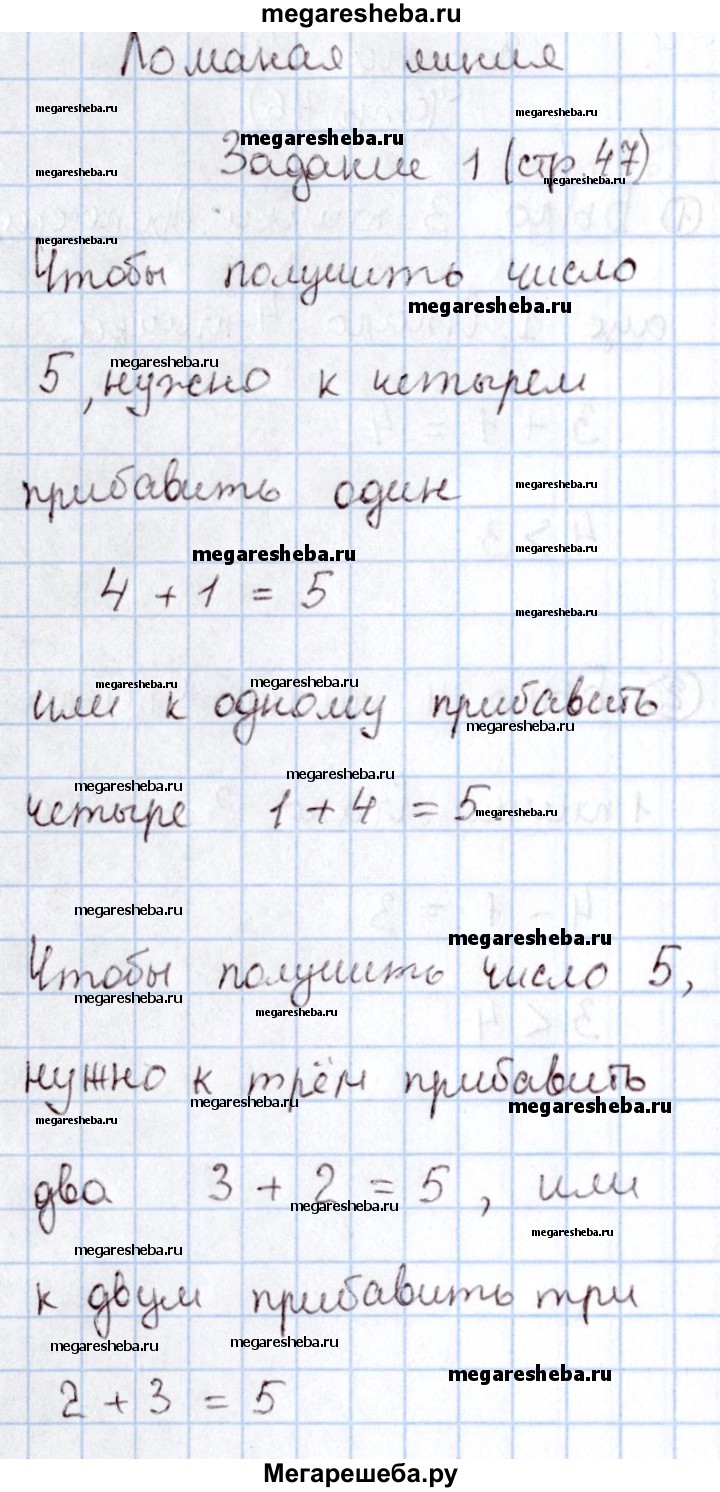 megaresheba.ru
Ломаная линия
megaresheba.ru megaresheba.ru
megaresheba.ru
Задание 1 (стр. 47)
megaresheba.ru megaresheba.ru
megaresheba.ru
Чтобы получить число
megaresheba.ru
megaresheba.ru
5, нужно к четырём
прибавить один
megaresheba.ru
megaresheba.ru
megaresheba.ru
4 + 1 = 5
megaresheba.ru
megaresheba.ru megaresheba.ru
или к одному прибавить
megaresheba.ru
megaresheba.ru
megaresheba.ru
четыре 1 + 4 = 5.
megaresheba.ru
megaresheba.ru
megaresheba.ru
Чтобы получить число 5,
megaresheba.ru
megaresheba.ru
нужно к трём прибавить
megaresheba.ru
megaresheba.ru
megaresheba.ru
два 3 + 2 = 5, или
megaresheba.ru
megaresheba.ru
megaresheba.ru
к двум прибавить три
megaresheba.ru megaresheba.ru
megaresheba.ru
2 + 3 = 5
Мегарешеба.ру